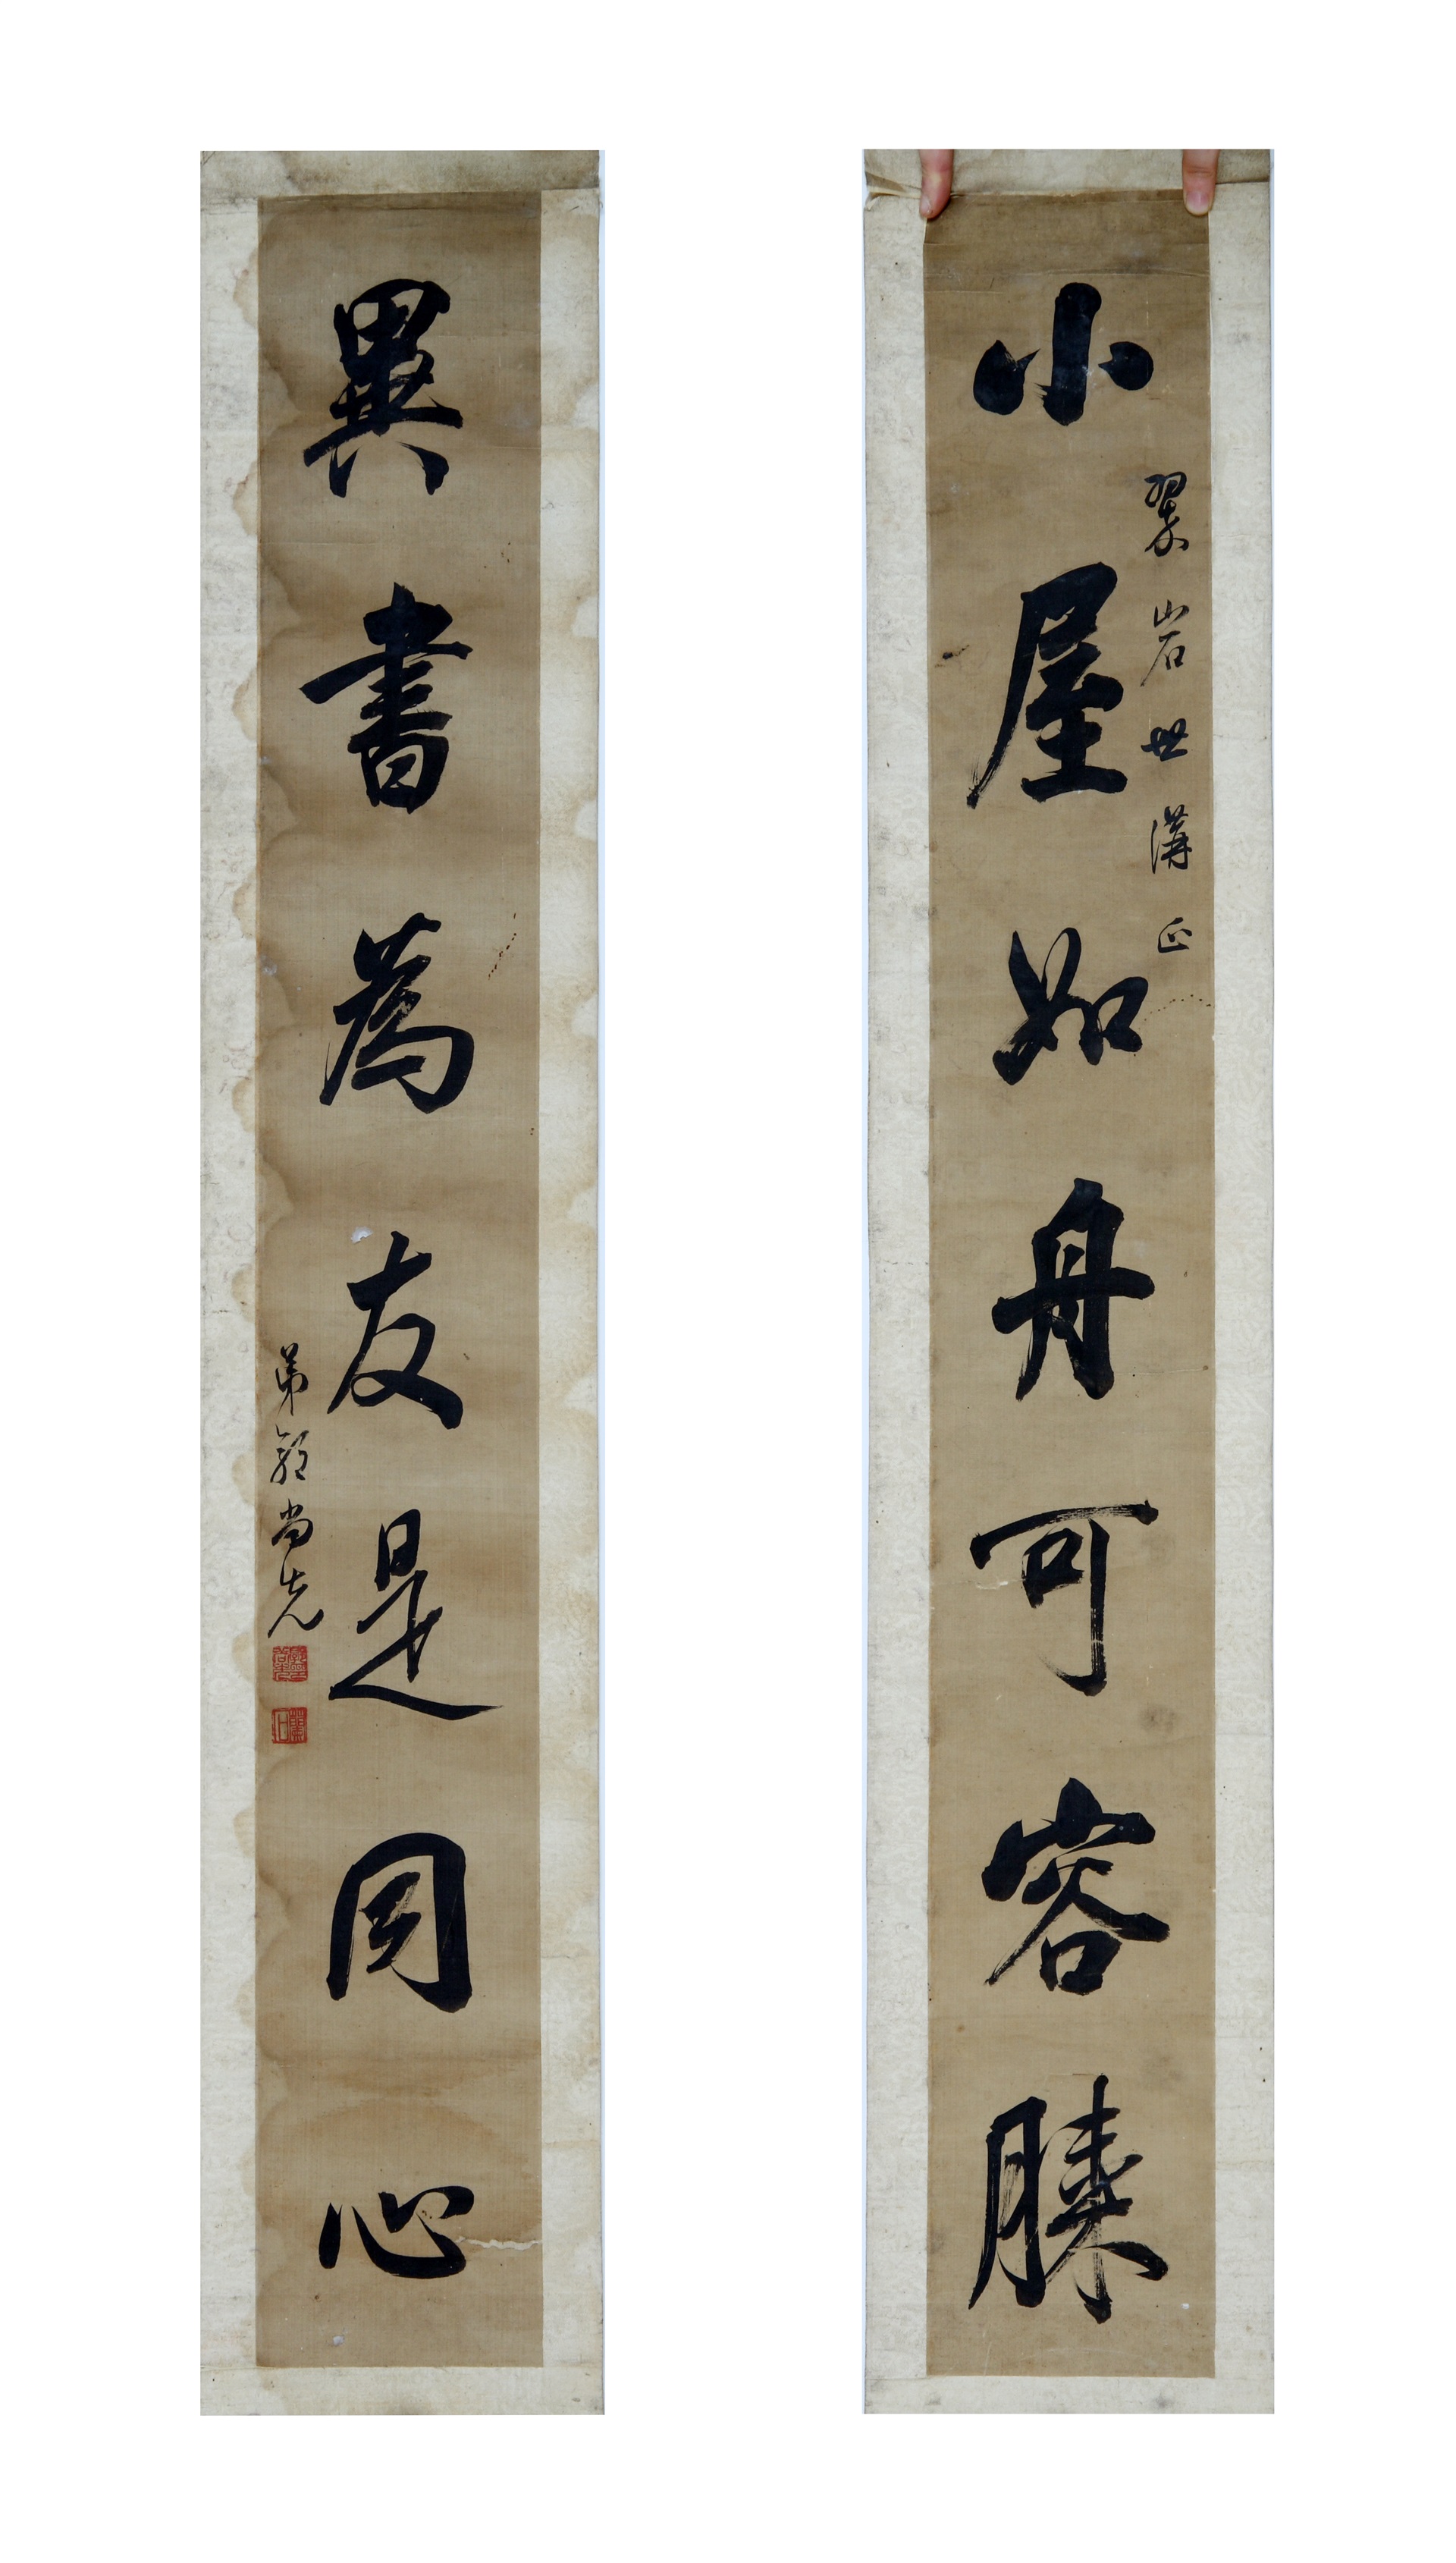 小屋如舟可容膝
翠岩世講正
異書為友是同心
弟郭尚先